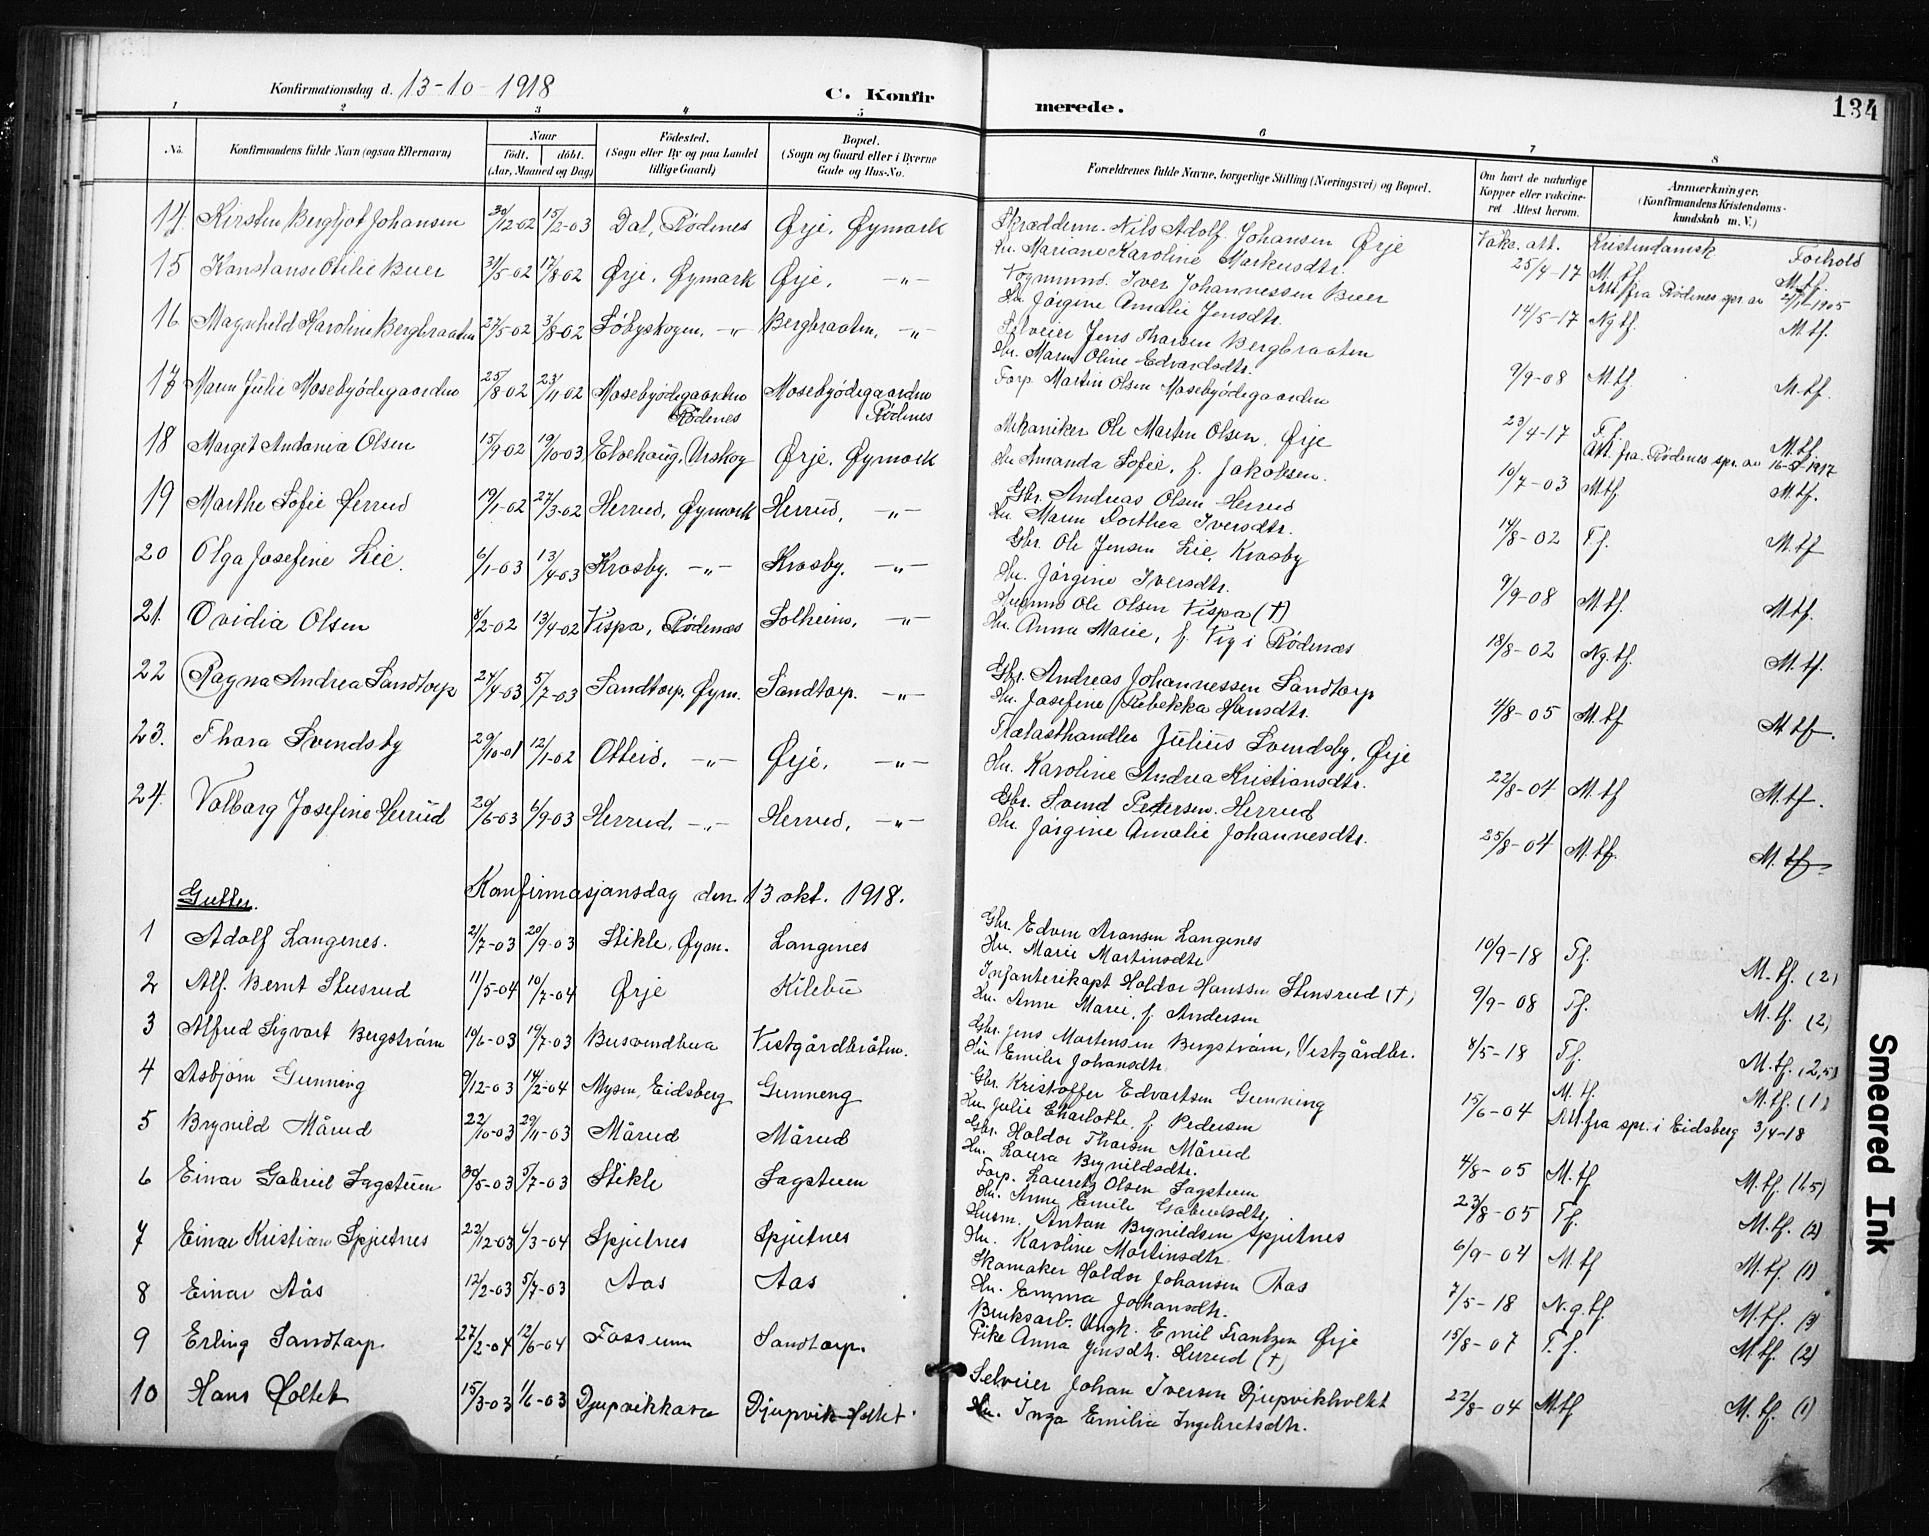 Konfirmationsdag d. 13-10-1918 C. Konfirmerede. 134
1 2 3 4 5 6 7 8
No. Konfirmandens fulde Navn (ogsaa Efternavn) Naar födt. döbt. (Aar, Maaned og Dag) Födested. (Sogn eller By og paa Landet tillige Gaard) Bopæl. (Sogn og Gaard eller i Byerne Gade og Hus-No. Forældrenes fulde Navne, borgerlige Stilling (Næringsvei) og Bopæl. Om havt de naturlige Kopper eller vakcineret Attest herom. Anmærkninger. (Konfirmandens Kristendomskundskab m. V.)
Vakc. att. Kristendomsk Forhold
14. Kirsten Bergljot Johansen 30/12-02 15/2-03 Dal, Rödenes Ørje, Øymark Skrædderm. Nils Adolf Johansen Ørje
Hu. Mariane Karoline Markusdtr. 25/4-17 M.tf. M.tf.
Att. fra Rödenes spr. av
15 Konstanse Otilie Buer 31/5-02 17/8-02 Ørje, Øymark Ørje, -"- Vognmand. Iver Johannessen Buer
Hu. Jörgine Amalie Jensdtr. 14/5-17 Ng tf. M.tf.
16. Magnhild Karoline Bergbraaten 27/5-02 3/8-02 Löbyskogen, -"- Bergbraaten, -"- Selveier Jens Thorsen Bergbraaten
Hu. Maren Oline Edvardsdtr. 9/9-08 M.tf. M.tf.
17 Maren Julie Mosebyödegaarden 25/8-02 23/11-02 Mosebyödegaarden Rödenes Mosebyödegaarden Rödenes Forp. Martin Olsen Mosebyödegaarden 23/4-17 T.f. M.tf.
Att. fra Rödenes spr. av
18 Margit Andania Olsen 15/9-02 19/10-03 Elvehaug, Urskog Ørje, Øymark Mekaniker Ole Marten Olsen, Ørje
Hu Amanda Sofie, f. Jakobsen. 10/7-03 M.tf M.tf.
19 Marthe Sofie Herrud 19/1-02 27/3-02 Herrud, Øymark Herrud, -"- Gbr. Andreas Olsen Herrud
Hu Maren Dorthea Iversdtr. 14/8-02 T.f. M.tf
20 Olga Josefine Lie. 6/1-03 13/4-03 Krosby. -"- Krosby. -"- Gbr. Ole Jensen Lie, Krosby
Hu. Jörgine Iversdtr. 9/9-08 M.tf. M.tf.
21. Ovidia Olsen 8/2-02 13/4-02 Vispa, Rödenæs Solheim, -"- Husmd Ole Olsen Vispa (†)
Hu. Anna Marie, f. Vig i Rödenæs 18/8-02 Ng.tf. M.tf.
22 Ragna Andrea Sandtorp 27/4-03 5/7-03 Sandtorp, Øym. Sandtorp. -"- Gbr. Andreas Johannessen Sandtorp
Hu. Josefine Rebekka Hansdtr. 4/8-05 M.tf M.tf.
23. Thora Svendsby 29/10-01 12/1-02 Otteid, -"- Ørje, -"- Trælasthandler Julius Svendsby, Ørje
Hu. Karoline Andrea Kristiansdtr. 22/8-04 M.tf M.tf.
24. Valborg Josefine Herrud 20/6-03 6/9-03 Herrud, -"- Herrud, -"- Gbr. Svend Petersen Herrud
Hu. Jörgine Amalie Johannesdtr. 25/8-04 M.tf. M.tf.
Gutter. Konfirmasjonsdag den 13 okt. 1918.
1 Adolf Langenes. 21/7-03 20/9-03 Stikle, Øym. Langenes Gbr. Edvin Aronsen Langenes
Hu. Marie Martinsdtr 10/9-18 Tf. M.tf. (2)
2 Alf. Bernt Stensrud 11/5-04 10/7-04 Ørje Kilebu Infanterikapt Holdor Hanssen Stensrud (†)
Hu. Anne Marie, f. Andersen 9/9-08 Tf. M.tf. (2)
3 Alfred Sigvart Bergström 10/6-03 19/7-03 Busvendbua Vestgårdbråten. Gbr. Jens Martensen Bergström, Vestgårdbr.
Hu Emilie Johansdtr. 8/5-18 Tf. M.tf. (2,5)
4 Asbjörn Gunneng 9/12-03 14/2-04 Mysen, Eidsberg Gunneng Gbr. Kristoffer Edvartsen Gunneng
Hu. Julie Charlotte, f. Pedersen 15/6-04 M.tf. M.tf. (1)
Att. fra spr. i Eidsberg 3/4-18
5 Brynild Mårud 22/10-03 29/11-03 Mårud Mårud Gbr. Holdor Thorsen Mårud
Hu. Laura Brynildsdtr. 4/8-05 M.tf M.tf. (1,5)
6 Einar Gabriel Sagstuen 30/5-03 5/7-03 Stikle Sagstuen Forp. Laurets Olsen Sagstuen
Hu. Anne Emilie Gabrielsdtr. 23/8-05 Tf. M.tf. (2)
7 Einar Kristian Spjutnes 22/12-03 6/3-04 Spjutnes Spjutnes Husm. Antan Brynildsen Spjutnes
Hu. Karoline Martinsdtr. 6/9-04 M.tf M.tf. (1)
8 Einar Aås 12/2-03 5/7-03 Aas Aas Skomaker Holdor Johansen Aas
Hu. Emma Johansdtr. 7/5-18 N.g.tf. M.tf. (3)
9 Erling Sandtorp 27/2-04 12/6-04 Fossum Sandtorp. Bruksarb. Ungk. Emil Frantzen Ørje
Pike Anna Jensdtr. Herrud (†) 15/8-07 T.f. M.tf. (2)
10 Hans Holtet 15/3-03 1/6-03 Djupvikkasa Djupvik-Holtet Selveier Johan Iversen Djupvikholtet
Hu. Inga Emilie Ingebretsdtr. 22/8-04 M.tf M.tf. (1)
Smeared Ink